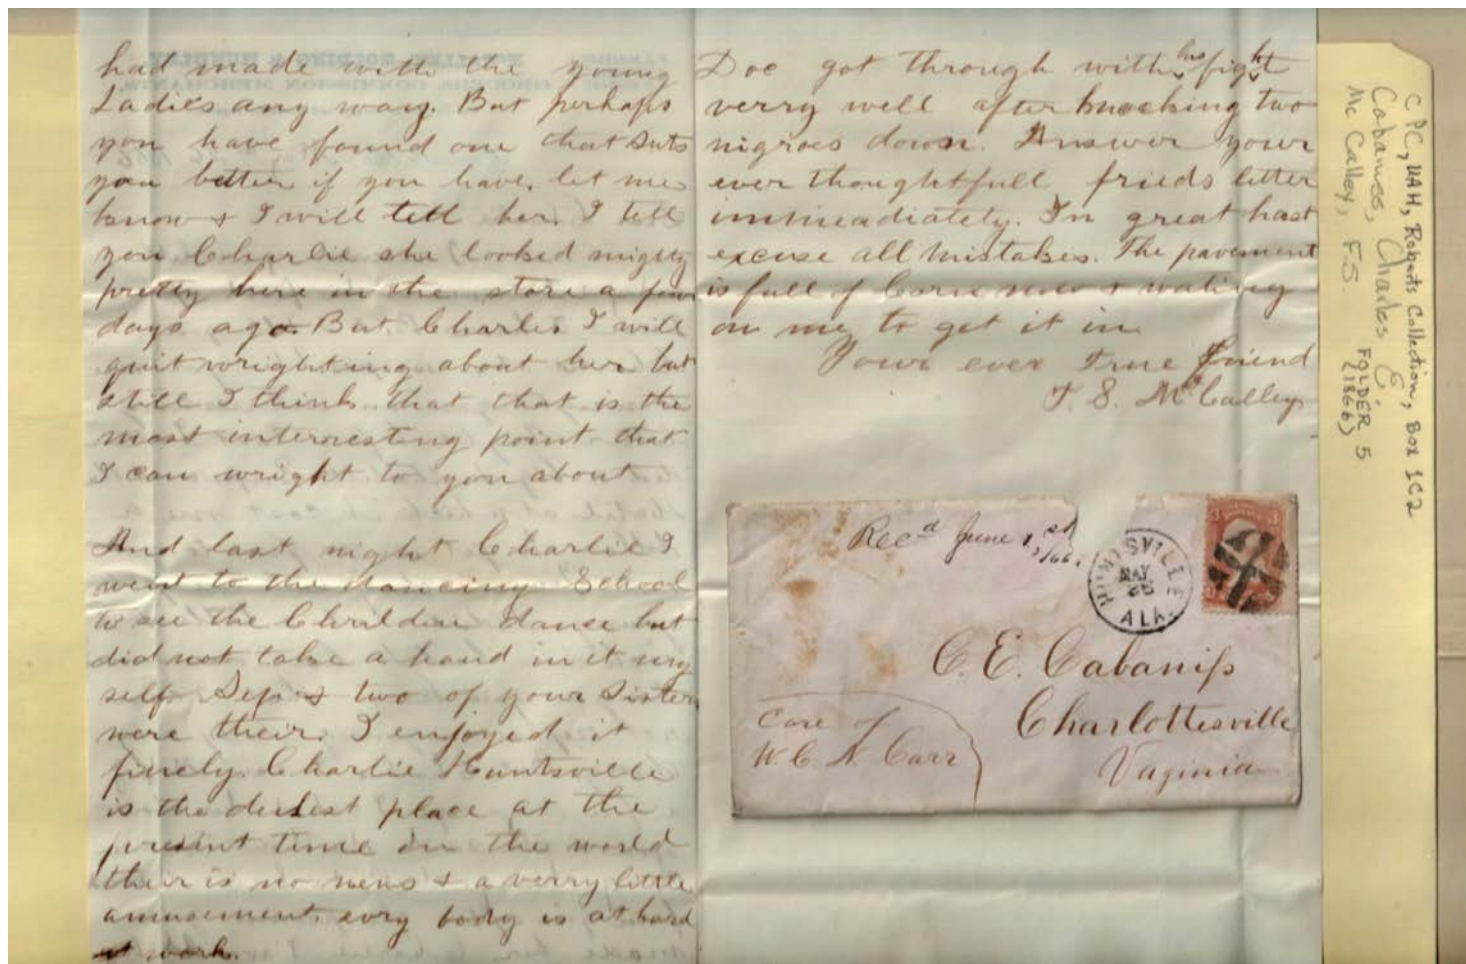 had made with the young
Ladies any way. But perhaps
you have found one that suts
you better if you have, let me
know & I will tell her. I tell
you Charlie she looked mighty
pretty here in the store a few
days ago. But Charlie I will
quit wrighting about her but
still I think that that is the
most interresting point that
I can wright to you about
And last night Charlie I
went to the dancing School
to see the Children dance but
did not take a hand in it my
self. Sep & two of your Sisters
were their. I enjoyed it
finely. Charlie Huntsville
is the dullest place at the
present time in the world
their is no news & a verry little
amusement. evry body is at hard
work.
Doc got through with his fight
verry well after knocking two
nigroes down. Answer your
ever thoughtfull frieds letter
immeadiately. In great hast
excuse all mistakes. The pavement
is full of Corn now & wating
on me to get it in
Your ever True friend
F. S. McCalley
Recd June 1st
/66.
HUNTSVILLE
MAY
ALA.
3
C. E. Cabaniss
Charlottesville
Vaginia
Care of
W. C. N. Carr
CPC, UAH, Roberts Collection, Box 1C2
Cabaniss, Charles E.
FOLDER 5
Mc Calley, F.S. (1866)